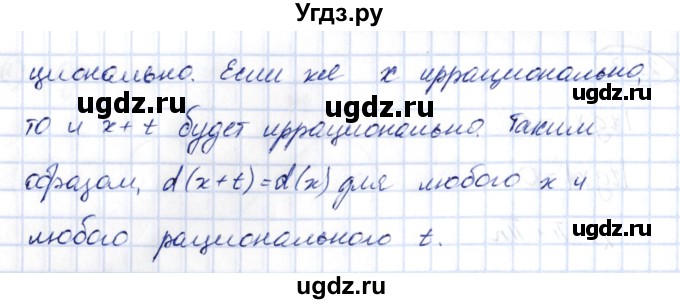 Угдз.ру
ционально. Если же x иррационально,
ugdz.ru ugdz.ru ugdz.ru
то и x+t будет иррационально. Таким
образом, d(x+t)=d(x) для любого x и
любого рационального t.
ugdz.ru ugdz.ru
Угдз.ру